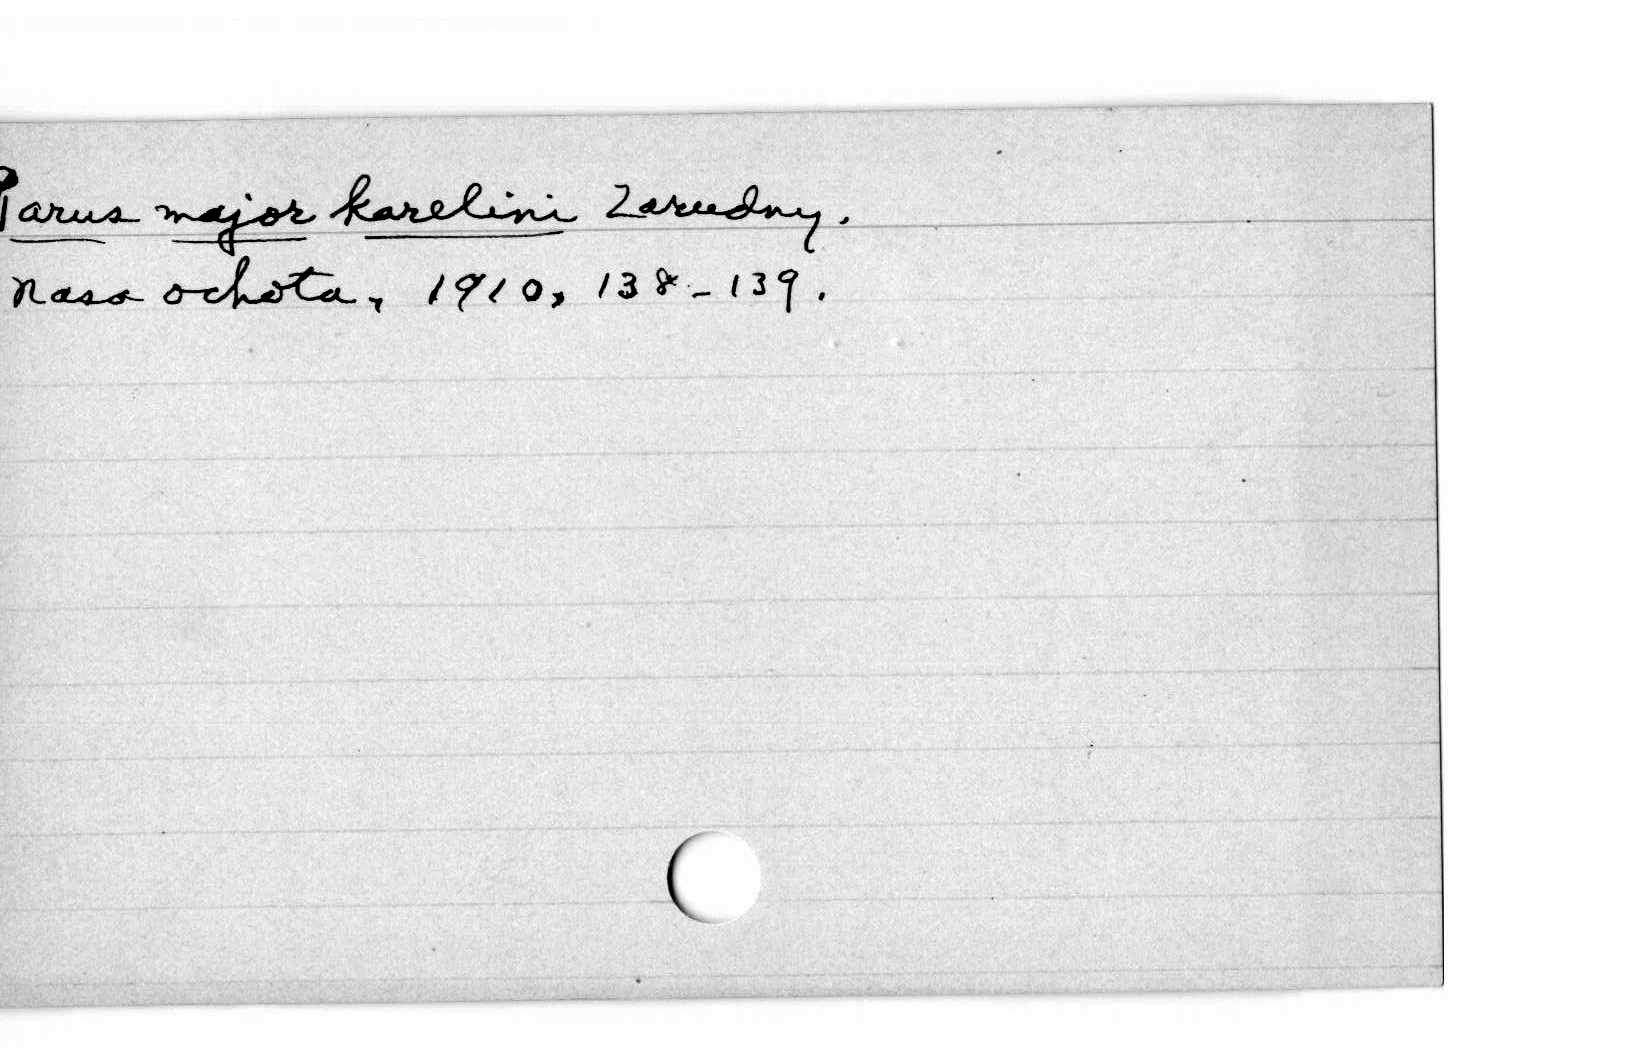 Parus major karelini Zarudny.
Nasa ochota, 1910, 138-139.